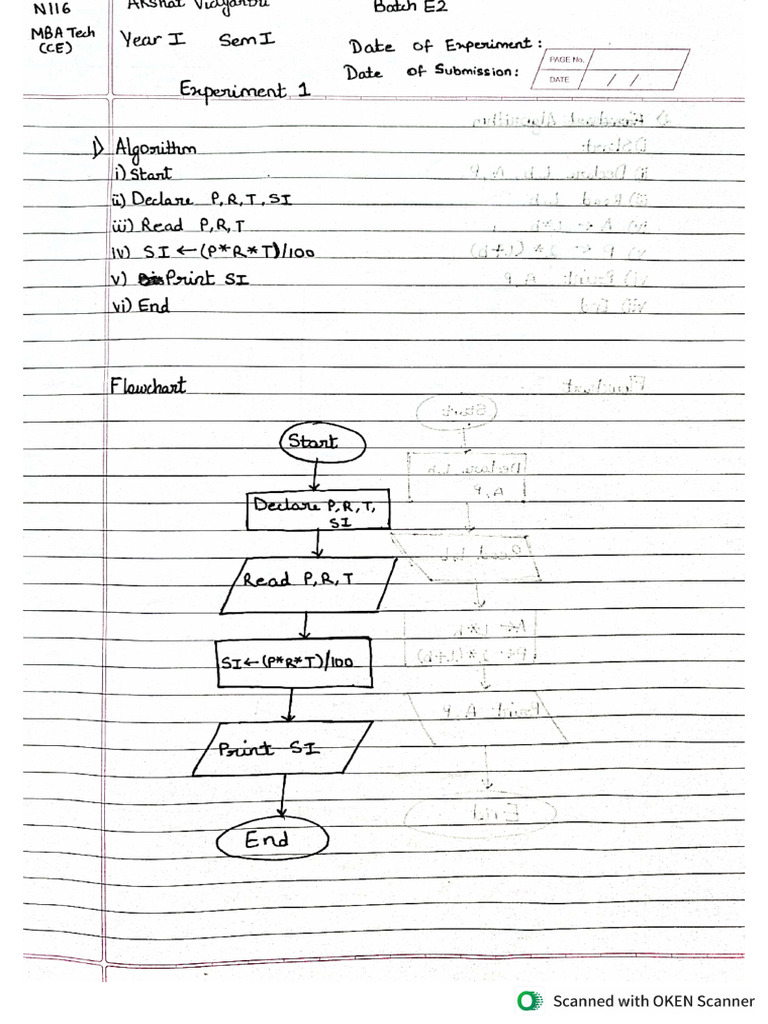 N116
Batch E2
MBA Tech
(CE)
Year I Sem I
Date of Experiment:
Date of Submission:
PAGE No.
DATE / /
Experiment 1
1) Algorithm
i) Start
ii) Declare P, R, T, SI
iii) Read P, R, T
iv) SI ← (P*R*T)/100
v) Print SI
vi) End
Flowchart
Start
Declare P, R, T,
SI
Read P, R, T
SI ← (P*R*T)/100
Print SI
End
Scanned with OKEN Scanner